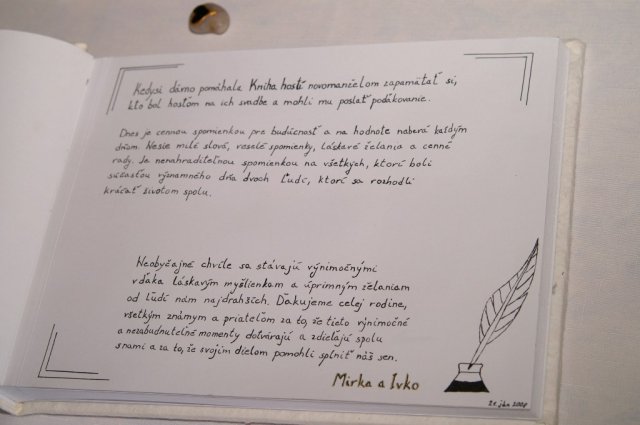 Kedysi dávno pomáhala Kniha hostí novomanželom zapamätať si,
kto bol hosťom na ich svadbe a mohli mu poslať poďakovanie.
Dnes je cennou spomienkou pre budúcnosť a na hodnote naberá každým
dňom. Nesie milé slová, veselé spomienky, láskavé želania a cenné
rady. Je nenahraditeľnou spomienkou na všetkých, ktorí boli
súčasťou významného dňa dvoch ľudí, ktorí sa rozhodli
kráčať životom spolu.
Neobyčajné chvíle sa stávajú výnimočnými
vďaka láskavým myšlienkam a úprimným želaniam
od ľudí nám najdrahších. Ďakujeme celej rodine,
všetkým známym a priateľom za to, že tieto výnimočné
a nezabudnuteľné momenty dotvárajú a zdieľajú spolu
s nami a za to, že svojim dielom pomohli splniť náš sen.
Mirka a Ivko